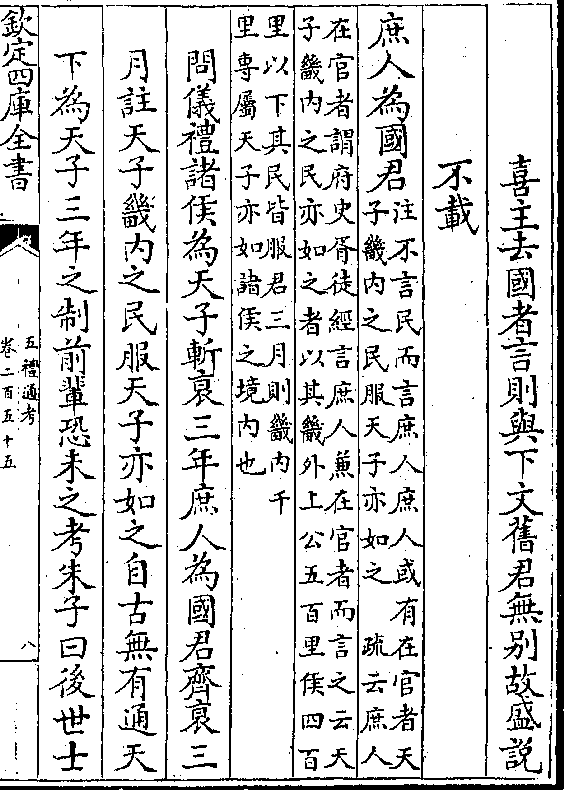 喜主去國者言則與下文舊君無别故盛説
不載
庶人為國君注不言民而言庶人庶人或有在官者天
子畿内之民服天子亦如之　疏云庶人
在官者謂府史胥徒經言庶人兼在官者而言之云天
子畿内之民亦如之者以其畿外上公五百里侯四百
里以下其民皆服君三月則畿内千
里專屬天子亦如諸侯之境内也
問儀禮諸侯為天子斬衰三年庶人為國君齊衰三
月註天子畿内之民服天子亦如之自古無有通天
下為天子三年之制前輩恐未之考朱子曰後世士
欽定四庫全書
五禮通考
卷二百五十五
八